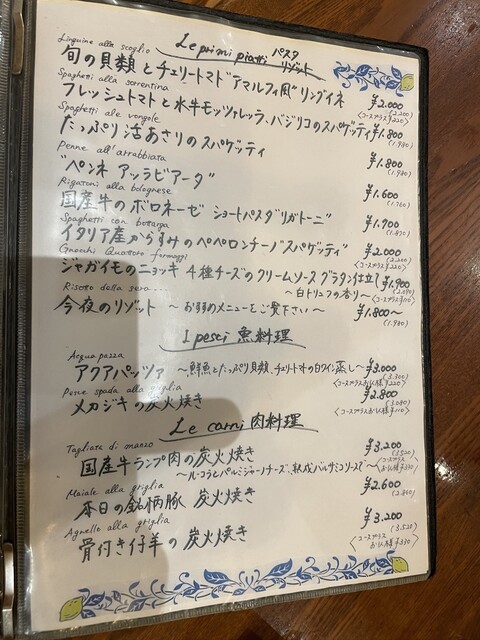 Le primi piatti パスタ リゾット
Linguine alla scoglio
旬の貝類とチェリートマト"アマルフィ風"リングイネ ¥2.000
(2.200)
Spaghetti alla sorrentina
<コースプラス¥220>
フレッシュトマトと水牛モッツァレッラ、バジリコのスパゲッティ ¥1.800
(1.980)
Spaghetti alle vongole
たっぷり活あさりのスパゲッティ ¥1.800
(1.980)
Penne all'arrabbiata
"ペンネ アッラビアータ" ¥1.600
(1.760)
Rigatoni alla bolognese
国産牛のボロネーゼ ショートパスタ"リガトーニ" ¥1.700
(1.870)
Spaghetti con bottarga
イタリア産からすみのペペロンチーノ"スパゲッティ" ¥2.000
(2.200)
<コースプラス¥220>
Gnocchi Quattro formaggi
ジャガイモのニョッキ 4種チーズのクリームソースグラタン仕立て ¥1.900
(2.090)
~白トリュフの香り~ <コースプラス¥110>
Risotto della sera....
今夜のリゾット ~お勧めメニューをご覧下さい~ ¥1.800~
(1.980)
I pesci 魚料理
Acqua pazza
アクアパッツァ ~鮮魚とたっぷり貝類、チェリートマトの白ワイン蒸し~ ¥3.000
(3.300)
<コースプラスお1人様¥220>
Pesce spada alla griglia
メカジキの炭火焼き ¥2.800
(3.080)
<コースプラスお1人様¥110>
Le carni 肉料理
Tagliata di manzo
国産牛ランプ肉の炭火焼き ¥3.200
(3.520)
~ルーコラとパルミジャーノチーズ、熟成バルサミコソースで~ <コースプラスお1人様¥330>
Maiale alla griglia
本日の銘柄豚 炭火焼き ¥2.600
(2.860)
Agnello alla griglia
骨付き仔羊の炭火焼き ¥3.200
(3.520)
<コースプラス
お1人様¥330>